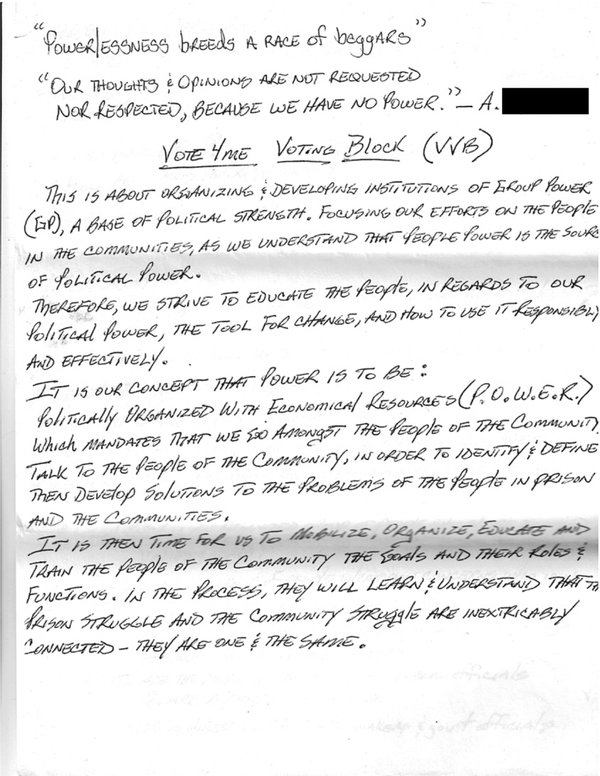 "Powerlessness breeds a race of beggars"
"Our thoughts & opinions are not requested
nor respected, because we have no power." — A.
Vote 4me Voting Block (VVB)
This is about organizing & developing institutions of Group Power
(GP), a base of political strength. Focusing our efforts on the people
in the communities, as we understand that people power is the sourc
of political power.
Therefore, we strive to educate the people, in regards to our
political power, the tool for change, and how to use it responsibly
and effectively.
It is our concept that power is to be:
Politically Organized With Economical Resources (P.O.W.E.R.)
Which mandates that we go amongst the people of the community,
talk to the people of the community, in order to identify & define
then develop solutions to the problems of the people in prison
and the communities.
It is then time for us to mobilize, organize, educate and
train the people of the community the goals and their roles &
functions. In the process, they will learn & understand that th
prison struggle and the community struggle are inextricably
connected – they are one & the same.